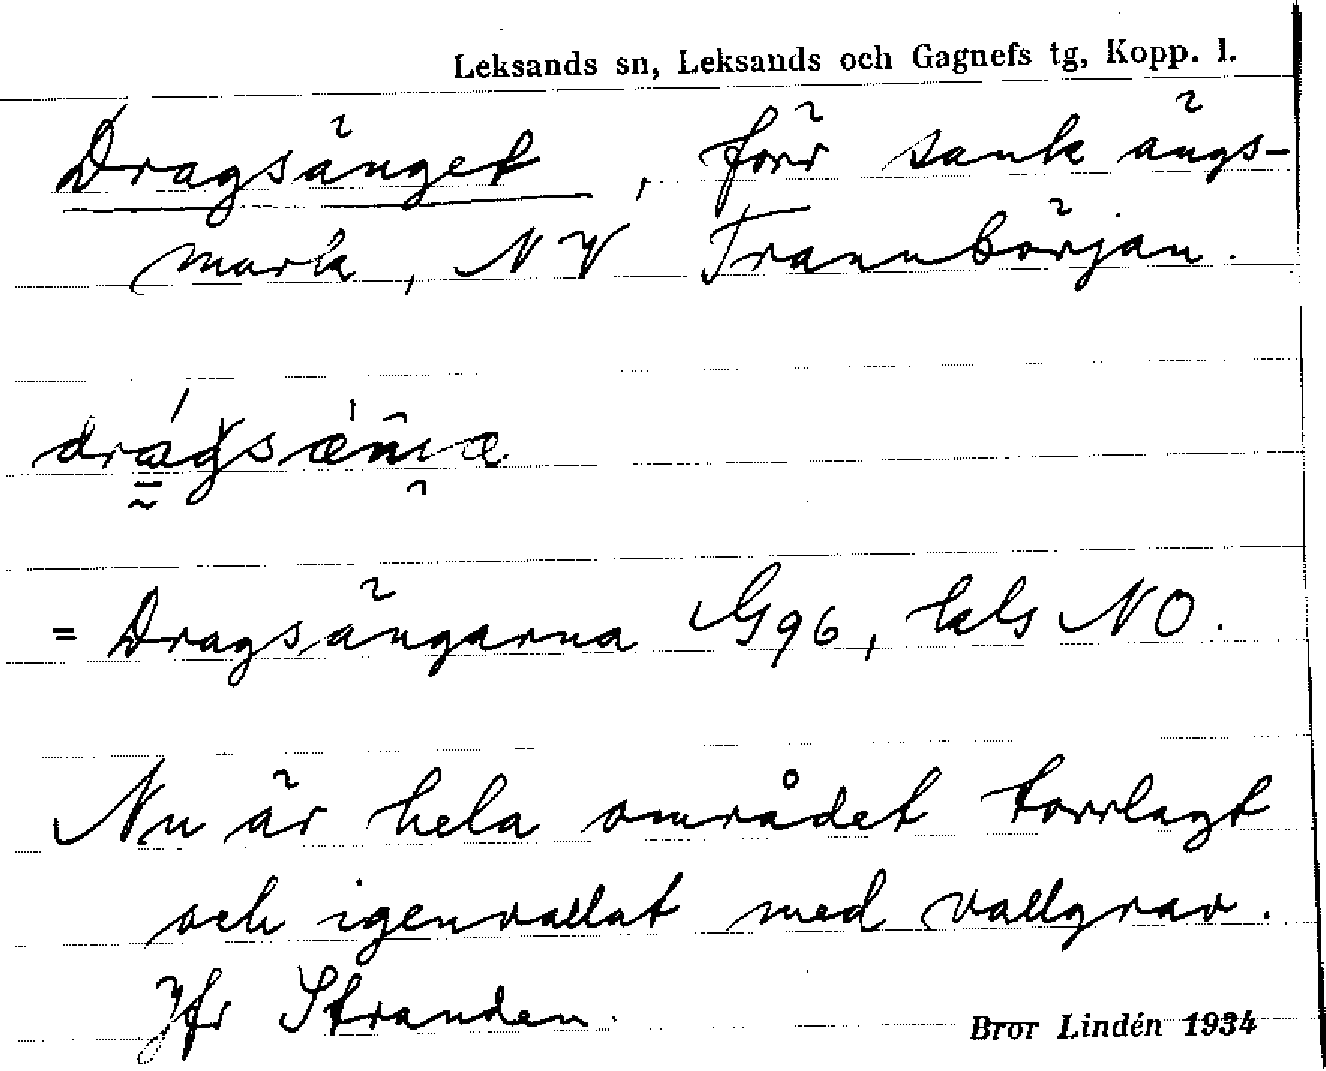 Leksands sn, Leksands och Gagnefs tg, Kopp. l.
Dragsänget, förr sank ängs-
mark, NV Trannbörjan.
= Dragsängarna G96, lals NO.
Nu är hela området torrlagt
och igenvallat med vallgrav.
Jfr Stranden.
Bror Lindén 1934